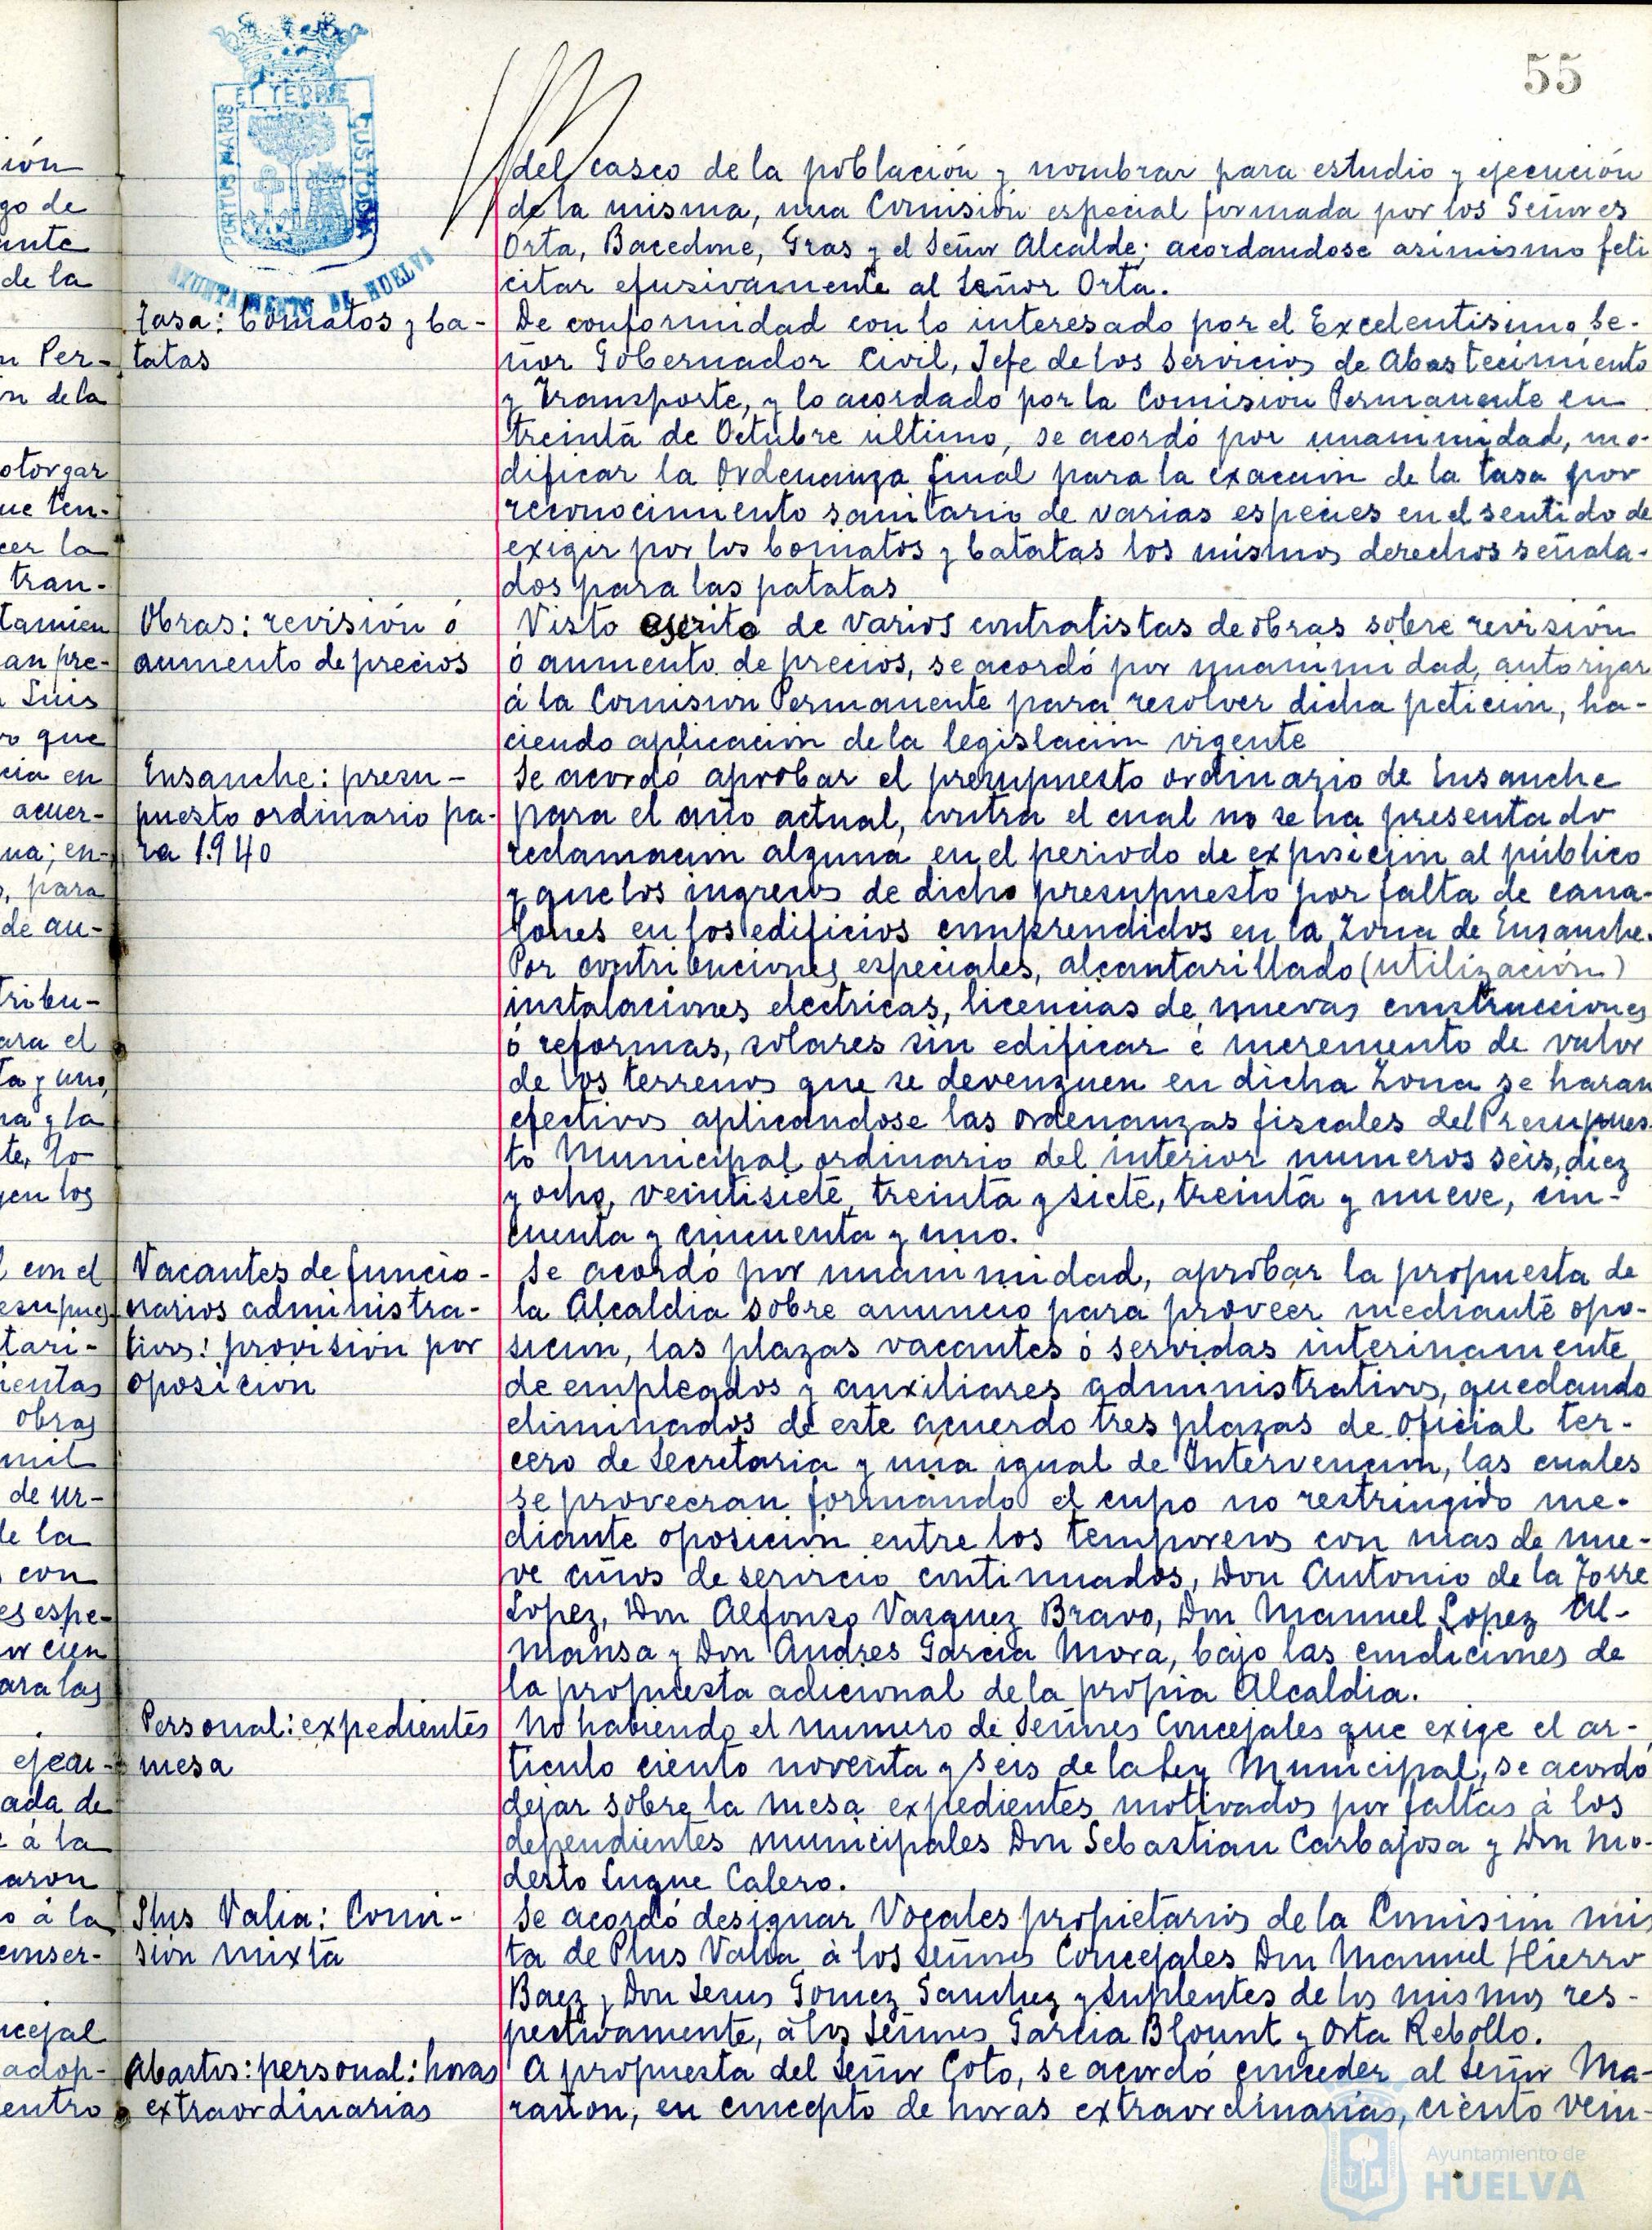 55
ET TERRE
PORTUS MARIS
CUSTODIA
AYUNTAMIENTO DE HUELVA
ión
go de
ante
de la
n Per-
n de la
otorgar
ue ten-
cer la
tran-
tamien
an pre-
Luis
o que
cia en
acuer-
na; en-
, para
de au-
tribu-
ara el
ta y uno,
na y la
te, lo
en los
l en el
esupues-
tari-
ientas
obras
mil
de ur-
de la
con
es espe-
or cien
ara las
ejecu-
ada de
e á la
aron
o á la
conser-
ncejal
adop-
entro
del casco de la población y nombrar para estudio y ejecución
de la misma, una Comisión especial formada por los Señores
Orta, Bacedone, Gras y el Señor Alcalde; acordandose asimismo feli
citar efusivamente al Señor Orta.
Tasa: boniatos y ba-
tatas
De conformidad con lo interesado por el Excelentisimo Se-
ñor Gobernador Civil, Jefe de los Servicios de Abastecimiento
y Transporte, y lo acordado por la Comision Permanente en
treinta de Octubre ultimo, se acordó por unanimidad, mo-
dificar la Ordenanza final para la exacción de la tasa por
reconocimiento sanitario de varias especies en el sentido de
exigir por los boniatos y batatas los mismos derechos señala-
dos para las patatas
Obras: revisión ó
aumento de precios
Visto escrito de varios contratistas de obras sobre revisión
ó aumento de precios, se acordó por unanimidad, autorizar
á la Comision Permanente para resolver dicha petición, ha-
ciendo aplicación de la legislación vigente
Ensanche: presu-
puesto ordinario pa-
ra 1.940
Se acordó aprobar el presupuesto ordinario de Ensanche
para el año actual, contra el cual no se ha presentado
reclamación alguna en el periodo de exposición al público
y que los ingresos de dicho presupuesto por falta de cana-
lones en los edificios comprendidos en la Zona de Ensanche.
Por contribuciones especiales, alcantarillado (utilización)
instalaciones electricas, licencias de nuevas construcciones
ó reformas, solares sin edificar é incremento de valor
de los terrenos que se devenguen en dicha Zona se haran
efectivos aplicandose las ordenanzas fiscales del Presupues-
to Municipal ordinario del interior numeros seis, diez
y ocho, veintisiete, treinta y siete, treinta y nueve, cin-
cuenta y cincuenta y uno.
Vacantes de funcio-
narios administra-
tivos: provisión por
oposicion
Se acordó por unanimidad, aprobar la propuesta de
la Alcaldia sobre anuncio para proveer mediante opo-
sicion, las plazas vacantes ó servidas interinamente
de empleados y auxiliares administrativos, quedando
eliminados de este acuerdo tres plazas de oficial ter-
cero de Secretaria y una igual de Intervención, las cuales
se proveeran formando el cupo no restringido me-
diante oposición entre los temporeros con mas de nue-
ve años de servicio continuados, Don Antonio de la Torre
Lopez, Don Alfonso Vazquez Bravo, Don Manuel Lopez Al-
mansa y Don Andres Garcia Mora, bajo las condiciones de
la propuesta adicional de la propia Alcaldia.
Personal: expedientes
mesa
No habiendo el numero de Señores Concejales que exige el ar-
ticulo ciento noventa y seis de la Ley Municipal, se acordó
dejar sobre la mesa expedientes motivados por faltas á los
dependientes municipales Don Sebastian Carbajosa y Don Mo-
desto Luque Calero.
Plus Valia: Comi-
sion mixta
Se acordó designar Vocales propietarios de la Comisión mix
ta de Plus Valia á los Señores Concejales Don Manuel Hierro
Baez y Don Jesus Gomez Sanchez y suplentes de los mismos res-
pectivamente, á los Señores Garcia Blount y Orta Rebollo.
Abastos: personal: horas
extraordinarias
A propuesta del Señor Coto, se acordó conceder al Señor Ma-
rañon, en concepto de horas extraordinarias, ciento vein-
Ayuntamiento de
HUELVA